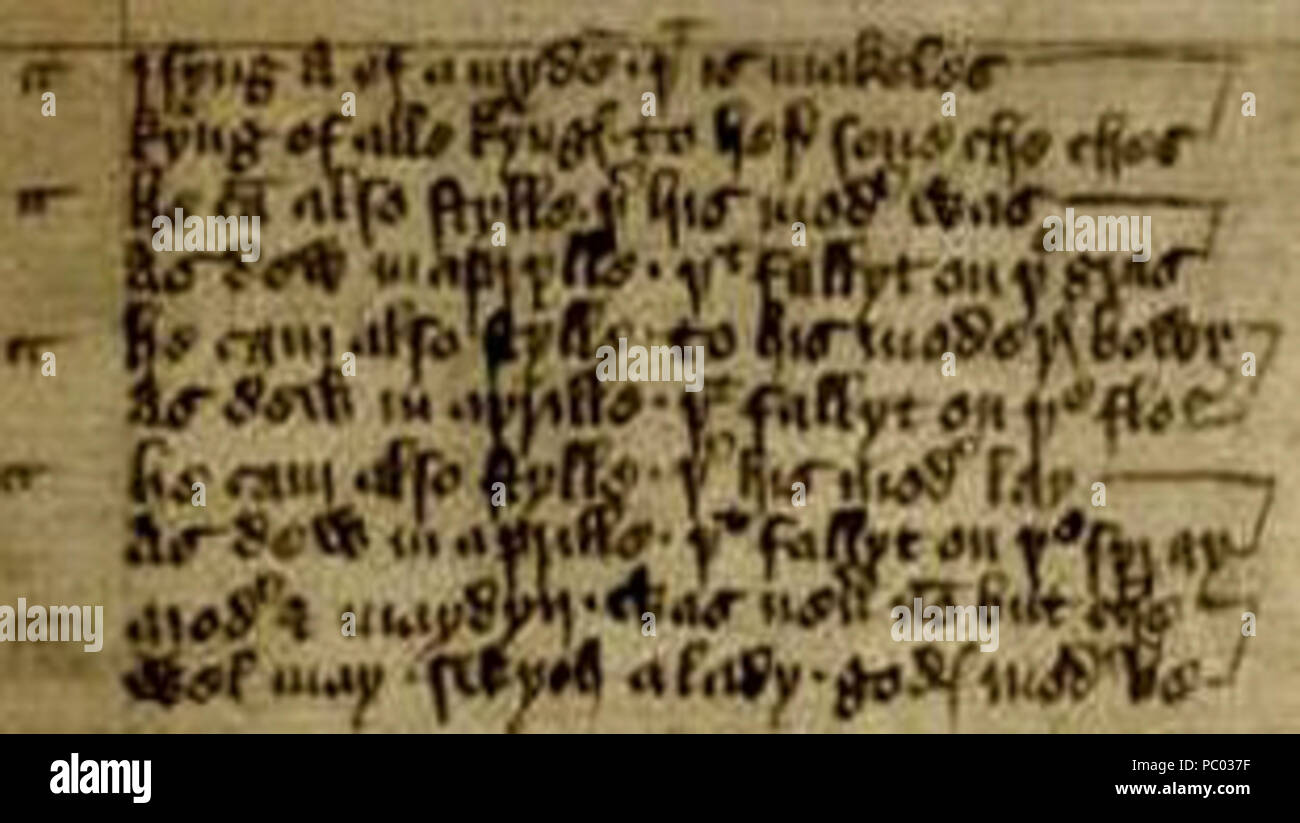 I syng A of a mydē · þt is makeles
kyng of alle kyngꝭ to her sone che ches
he cā also stylle · þr his modr was
as dew in aprylle · þt fallyt on þe gras
he cam also stylle · to his moderꝭ bowr
as dew in aprille · þt fallyt on þe flor
he cam also stylle · þr his modr lay
as dew in aprille · þt fallyt on þe spray
modr & maydyn · was non but che
wel may swych a lady · godꝭ modr be
alamy
Image ID: PC037F
www.alamy.com